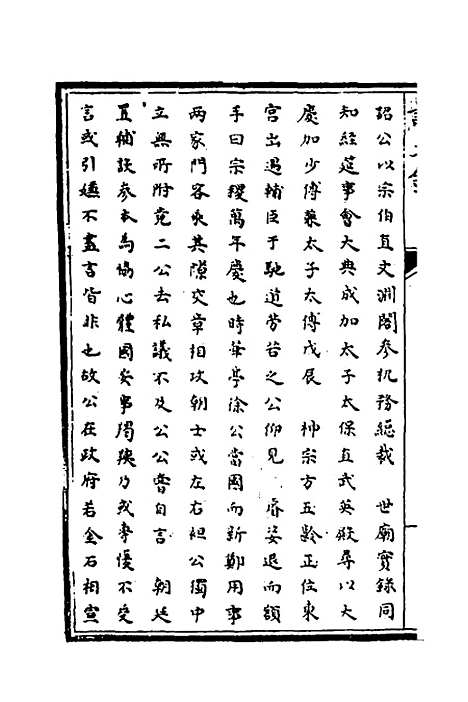 詔公以宗伯直文淵閣參机務總裁　世廟實錄同
知經筵事會大典成加太子太保直武英殿尋以大
慶加少傅兼太子太傅戊辰　神宗方五齡正位東
宮出遇輔臣于馳道勞苦之公仰見　睿姿退而額
手曰宗稷萬年慶也時華亭徐公當國而新鄭用事
两家門客乘其隙交章相攻朝士或左右袒公獨中
立無所附竟二公去私議不及公公嘗自言　朝廷
置輔誤參本為協心體國矣事獨殃乃或牽慢不受
言或引嬚不盡言皆非也故公在政府若金石相宣